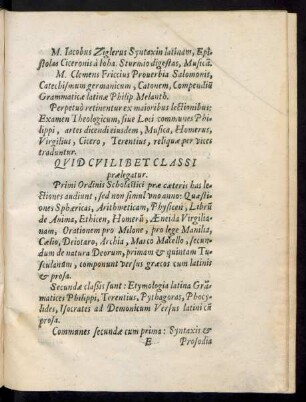 M. Iacobus Zeglerus Syntaxin latinam, Epi-
stolas Ciceronis à Ioha. Sturmio digestas, Musicã.
M. Clemens Friccius Prouerbia Salomonis,
Catechismum germanicum, Catonem, Compendiũ
Grammaticæ latinæ Philip. Melanth.
Perpetuò retinentur ex maioribus lectionibus:
Examen Theologicum, siue Loci communes Phi-
lippi, artes dicendi eiusdem, Musica, Homerus,
Virgilius, Cicero, Terentius, reliquæ per vices
traduntur.
QVID CVILIBET CLASSI
prælegatur.
Primi Ordinis Scholastici præ cæteris has le-
ctiones audiunt, sed non simul vno anno: Quæsti-
ones Sphæricas, Arithmeticam, Physicen, Librũ
de Anima, Ethicen, Homerũ, Æneida Virgilia-
nam, Orationem pro Milone, pro lege Manilia,
Cælio, Deiotaro, Archia, Marco Marcello, secun-
dum de natura Deorum, primam & quintam Tu-
sculanam, componunt versus græcos cum latinis
& prosa.
Secundæ classis sunt: Etymologia latina Grã-
matices Philippi, Terentius, Pythagoras, Phocy-
lides, Isocrates ad Demonicum Versus latini cũ
prosa.
Communes secundæ cum prima: Syntaxis &
E Prosodia